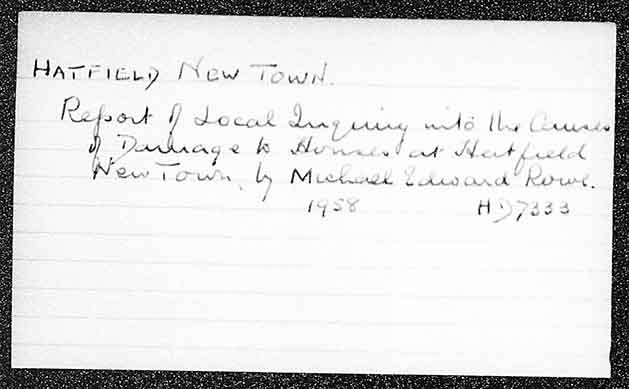 HATFIELD NEW TOWN.
Report of Local Inquiry into the Causes
of Damage to Houses at Hatfield
New Town, by Michael Edward Rowe.
1958 HD7333